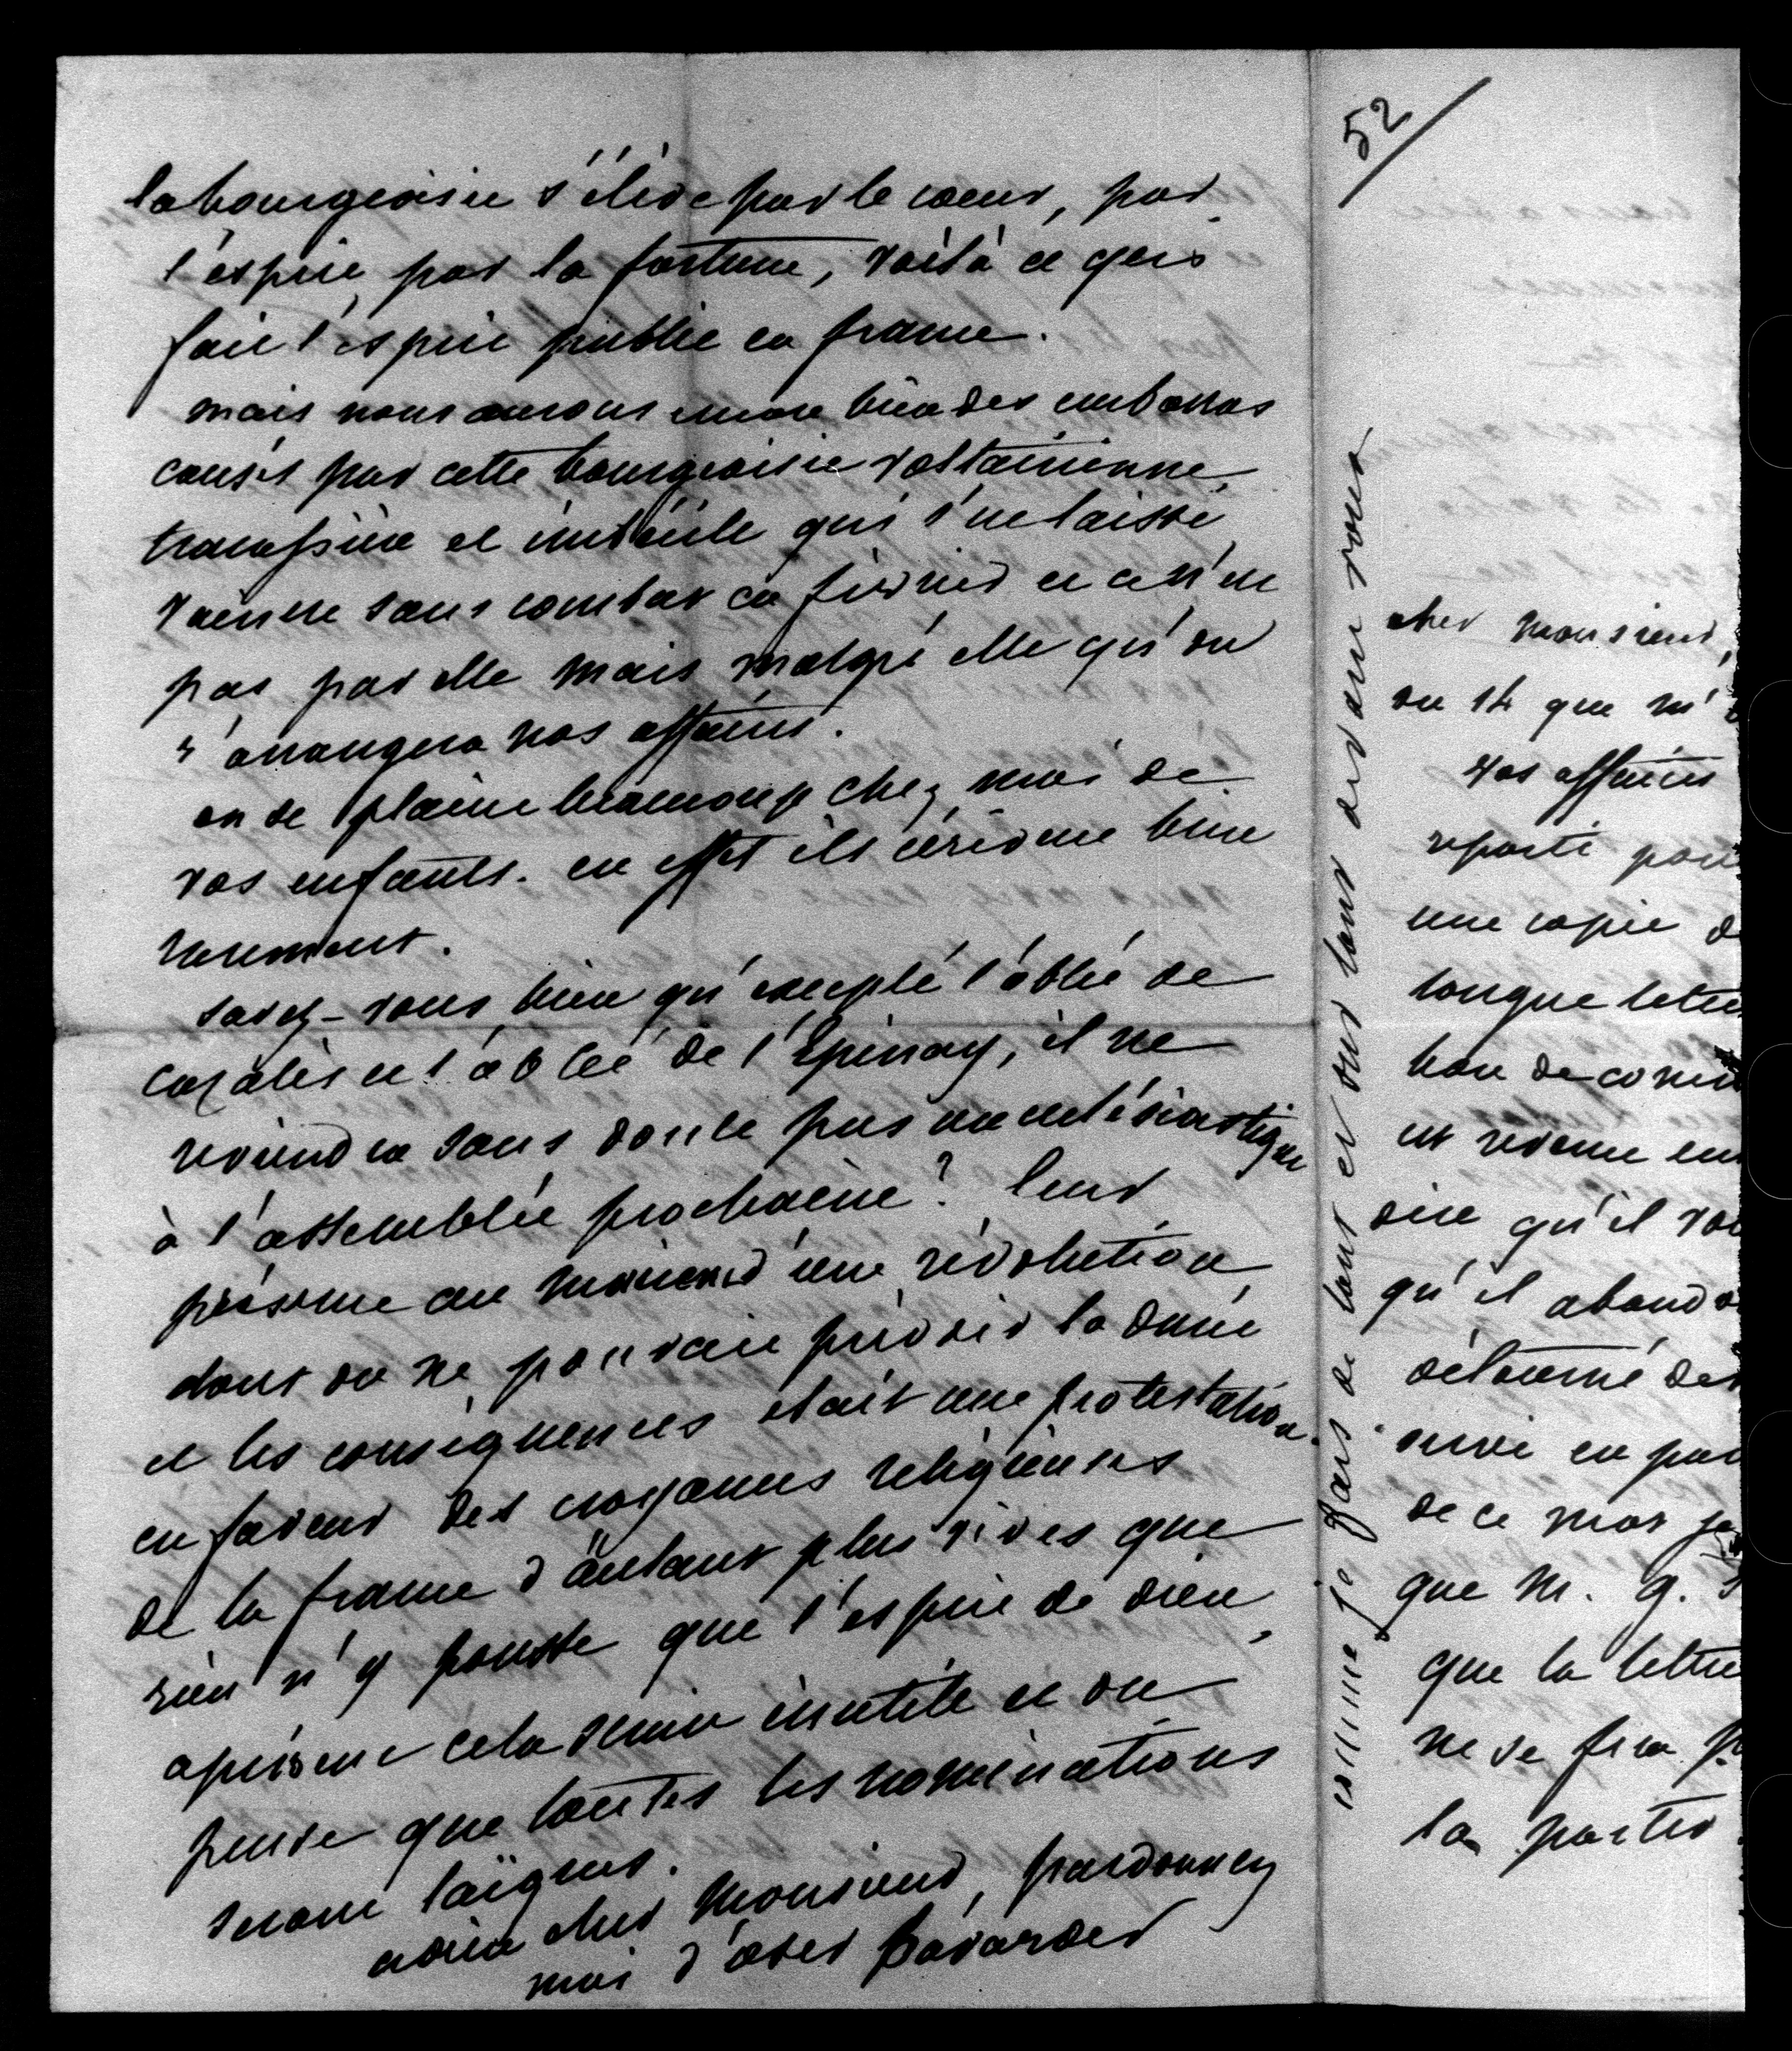 la bourgeoisie s'élève par le coeur, par
l'esprit, par la fortune, voilà ce qui
fait l'esprit public en france.
mais nous aurons encore bien des embarras
causés par cette bourgeoisie voltairienne,
tracassière et imbécile qui s'est laissé
vaincre sans combat en février et ce n'est
pas par elle mais malgré elle qu'on
s'arrangera nos affaires.
on se plaint beaucoup chez moi de
vos enfants. en effet ils écrivent bien
rarement.
savez-vous bien qu'excepté l'abbé de
cazalès et l'abbé de l'Epinay, il ne
reviendra sans doute pas un ecclésiastique
à l'assemblée prochaine? leur
présence au moment d'une révolution
dont on ne pouvait prévoir la durée
et les conséquences était une protestation
en faveur des croyances religieuses
de la france d'autant plus vives que
rien n'y pousse que l'esprit de dieu,
à présent cela serait inutile et on
pense que toutes les nominations
seront laïques.
adieu cher monsieur, pardonnez
moi d'oser bavarder
comme je fais de tout et sur tout avec vous
52
cher monsieur,
on 14 que m'
vos affaires
reparti pour
une copie d
longue lettre
est revenu en
dire qu'il vou
qu'il abandon
détourné de
suivi en par
de ce mot je
que M. g.
que la lettre
ne se fera p
la partie